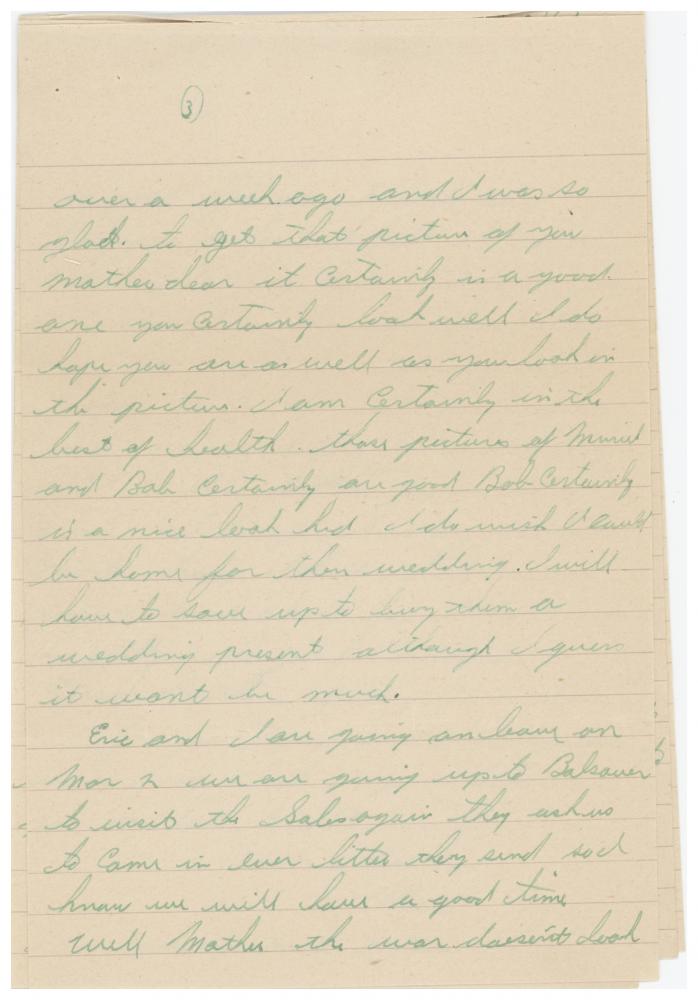 3
over a week ago and I was so
glad. to get that picture of you
mother dear it Certainly is a good.
one you Certainly look well I do
hope you are as well as you look in
the picture. I am Certainly in the
best of health. those pictures of Muriel
and Bob Certainly are good Bob Certainly
is a nice look kid I do wish I could
be home for then wedding. I will
have to save up to buy them a
wedding present although I guess
it wont be much.
Eric and I are going on leave on
Mar 2 we are going up to
to visit the again they ask us
to Come in ever litter they send so I
know we will have a good time
Well Mother the war doesent look